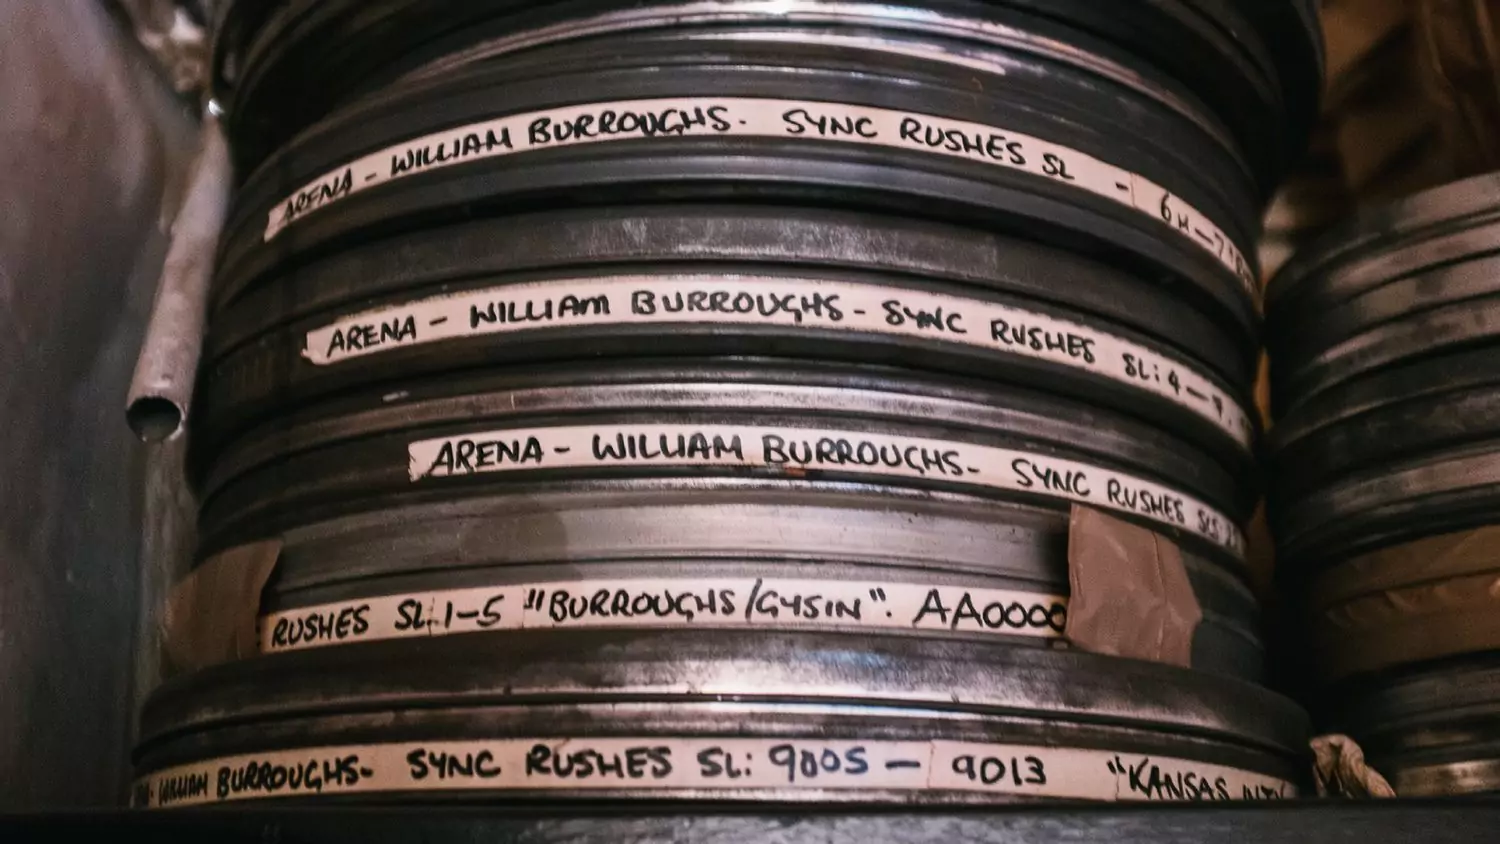 ARENA - WILLIAM BURROUGHS. SYNC RUSHES SL -
ARENA - WILLIAM BURROUGHS - SYNC RUSHES SL: 4 -
ARENA - WILLIAM BURROUGHS - SYNC RUSHES
RUSHES SL. 1-5 "BURROUGHS/GYSIN". AA0000
WILLIAM BURROUGHS - SYNC RUSHES SL: 9005 - 9013 "KANSAS